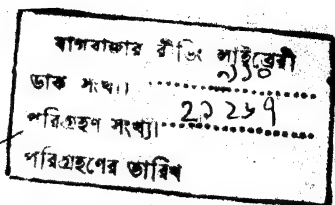 বাগবাজার রীডিং লাইব্রেরী
ডাক সংখ্যা ..........
পরিগ্রহণ সংখ্যা ..........
পরিগ্রহণের তারিখ